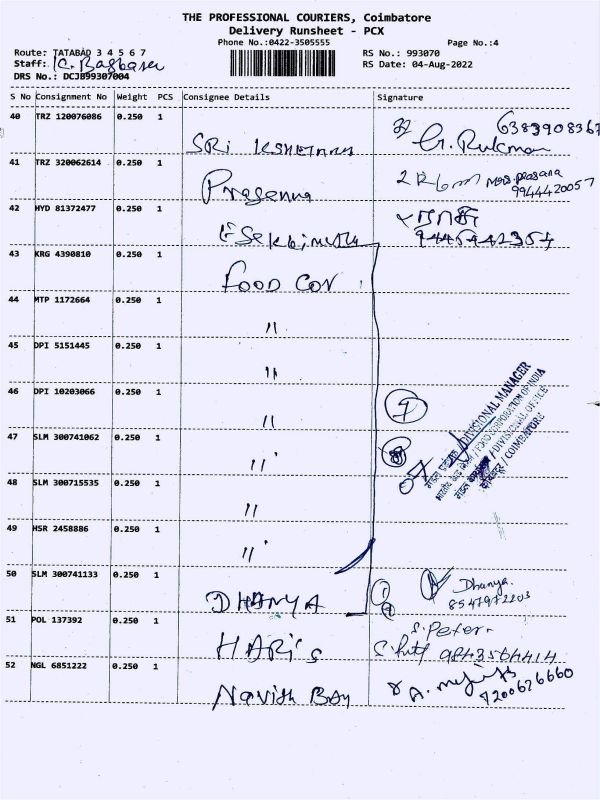 THE PROFESSIONAL COURIERS, Coimbatore
Delivery Runsheet - PCX
Phone No.:0422-3505555
Page No.:4
Route: TATABAD 3 4 5 6 7
RS No.: 993070
Staff:
RS Date: 04-Aug-2022
DRS No.: DCJB99307004
S No Consignment No Weight PCS Consignee Details Signature
40 TRZ 120076086 0.250 1 SRI
6383908367
41 TRZ 320062614 0.250 1 Prasenna
9944420057
42 HYD 81372477 0.250 1
9445442354
43 KRG 4390810 0.250 1 FOOD COV
44 MTP 1172664 0.250 1 "
45 DPI 5151445 0.250 1 "
46 DPI 10203066 0.250 1 "
47 SLM 300741062 0.250 1 "
DIVISIONAL MANAGER
FOOD CORPORATION OF INDIA
DIVISIONAL OFFICE
COIMBATORE
07
48 SLM 300715535 0.250 1 "
49 HSR 2458886 0.250 1 "
50 SLM 300741133 0.250 1 DHANYA Dhanya.
8547972203
51 POL 137392 0.250 1 HARI'S S. Peter.
9843564414
52 NGL 6851222 0.250 1 Navish Bay
7200626660